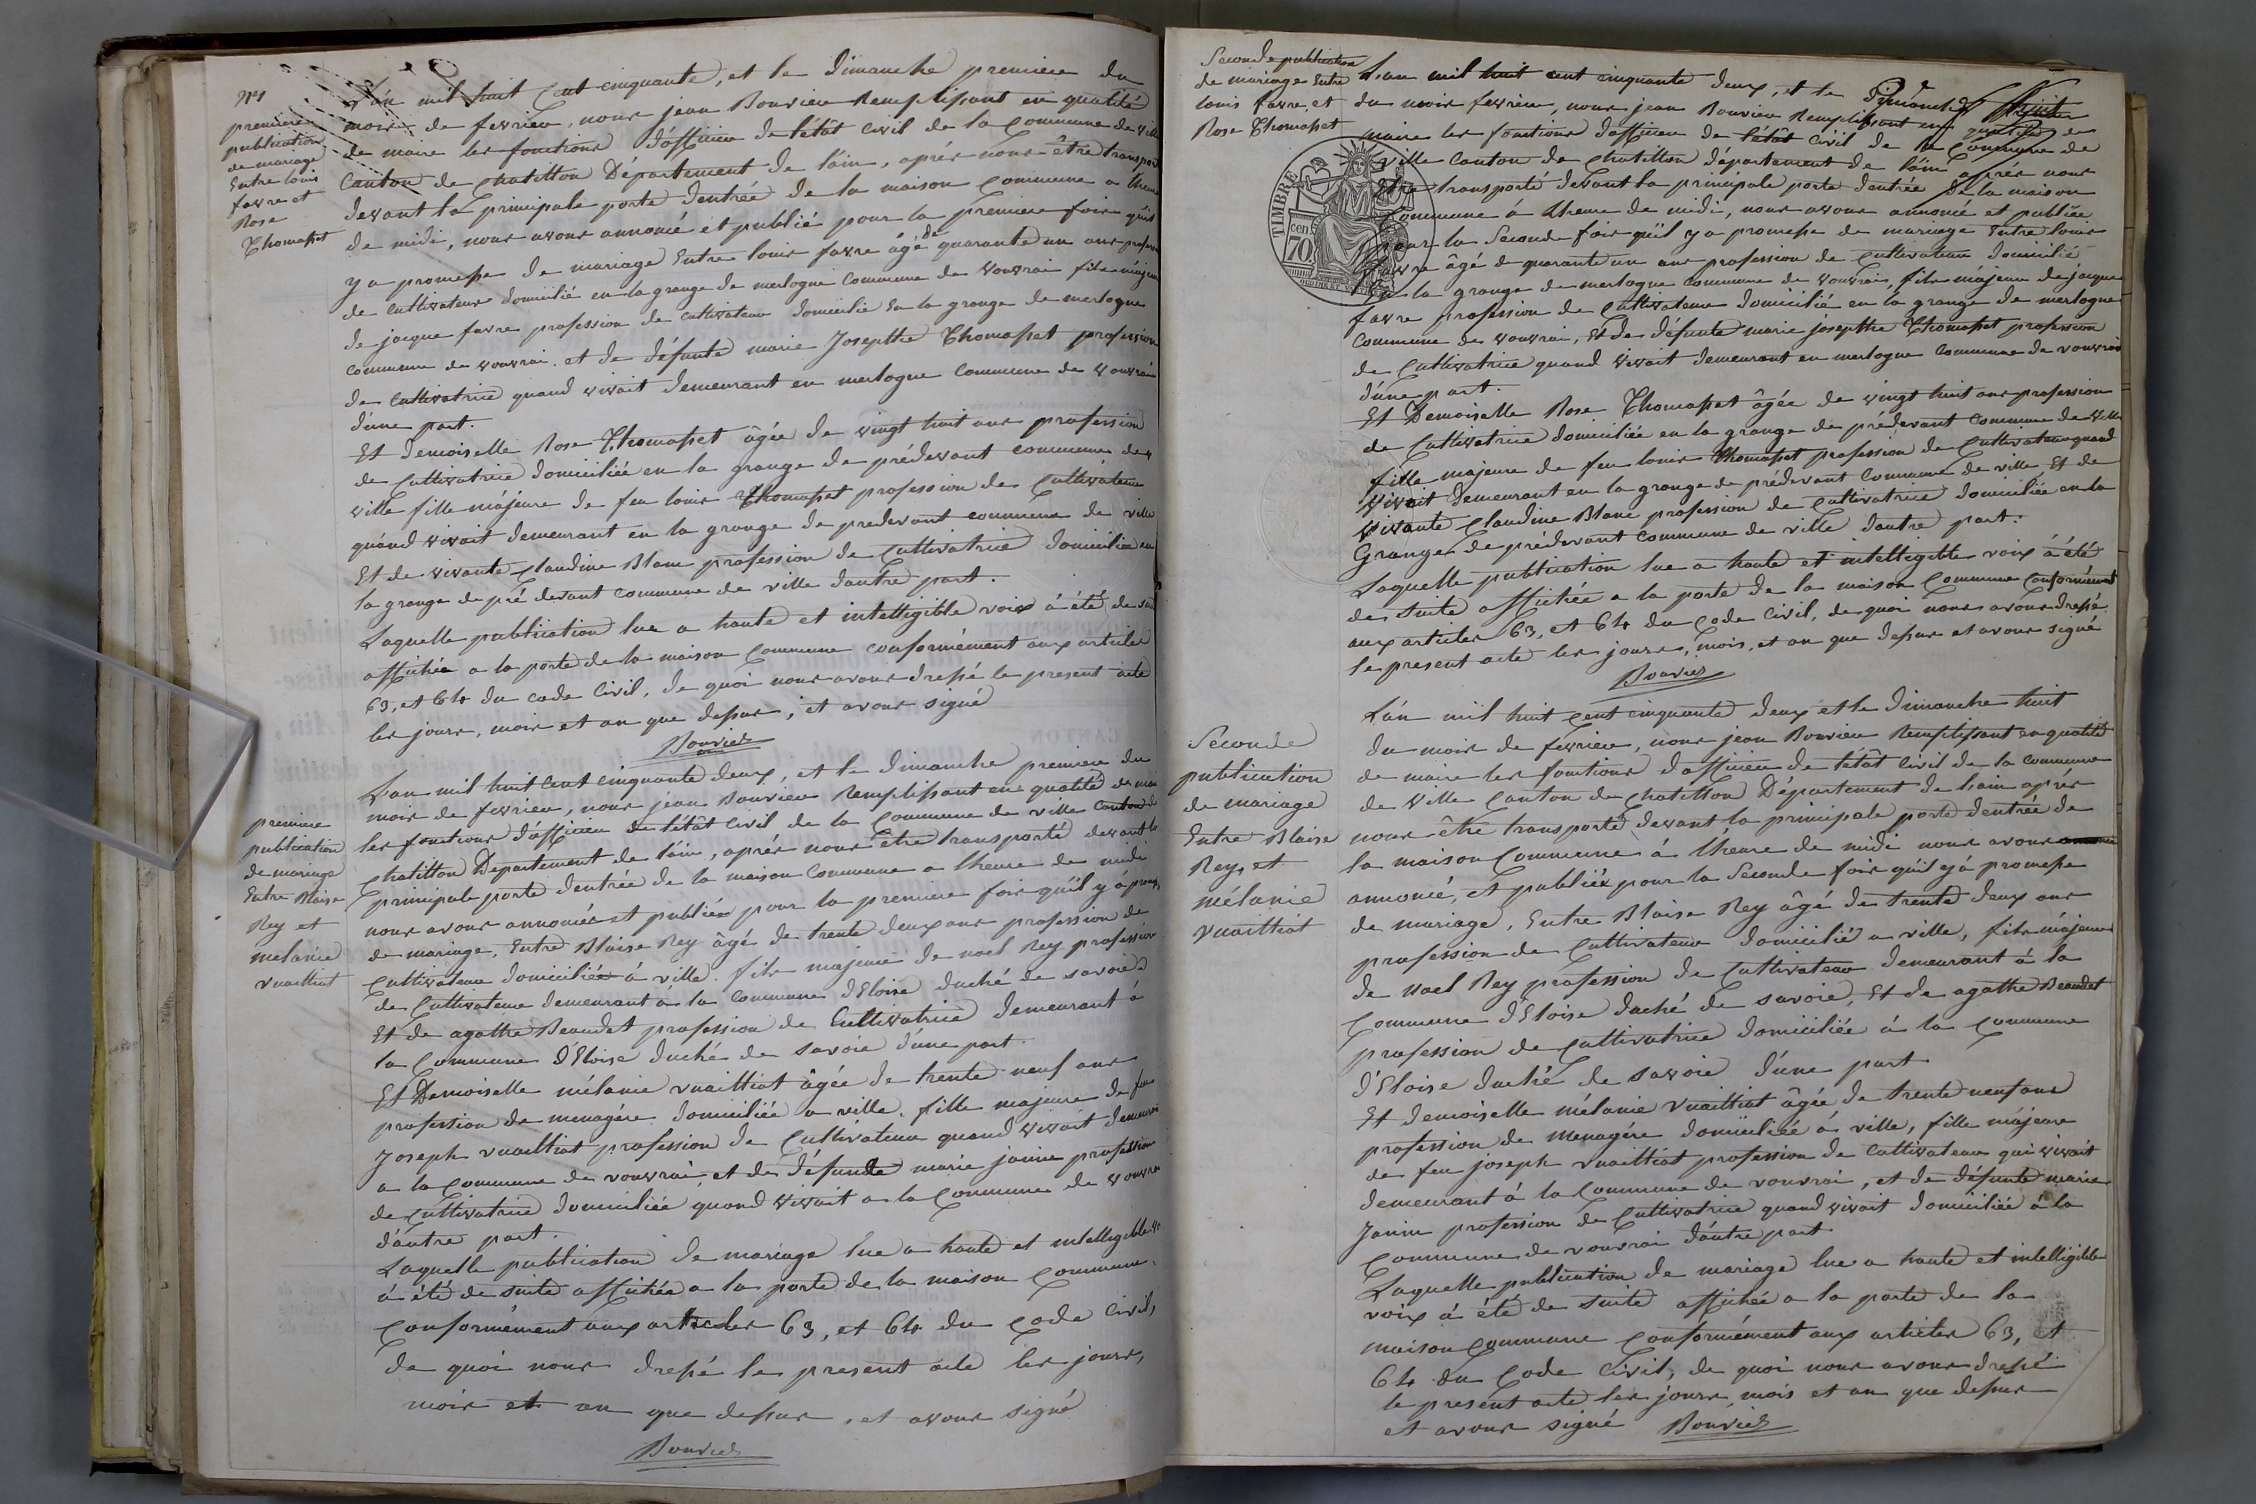 N° 1
premiere
publication
de mariage
Entre louis
favre et
Rose
Thomasset
L'án mil huit Cent cinquante, et le Dimanche premiere du
mois de fevrier, nous jean Bouvier Remplissant en qualité
de maire les fonctions d'officier de l'état Civil de la Commune de ville
Canton de Chatillon Département de l'ain, aprés nous être transporté
devant la principale porte d'entrée de la maison Commune a l'heure
de midi, nous avons annoncé et publié pour la premiere fois qu'il
y a promesse de mariage Entre louis favre âgé de quarante un ans profession
de Cultivateur domicilié en la grange de merlogne Commune de vouvrai fils majeur
de jacque favre profession de Cultivateur domicilié En la grange de merlogne
Commune de vouvrai, et de défunte marie Josepthe Thomasset profession
de Cultivatrice quand vivait demeurant en merlogne Commune de vouvrai
d'une part.
Et demoiselle Rose Thomasset âgée de vingt huit ans profession
de Cultivatrice domiciliée en la grange de prédevant commune de
ville fille májeure de feu louis Thomasset profession de Cultivateur
quánd vivait demeurant en la grange de predevant commune de ville
Et de vivante Claudine Blanc profession de Cultivatrice domiciliée en
la grange de pré devant Commune de ville d'autre part.
Laquelle publication lue a haute et intelligible voix á été de suite
affichée a la porte de la maison Commune conformément aux articles
63, et 64 du Code Civil, de quoi nous avons dressé le present acte
les jours, mois et an que dessus, et avons signé
Bouvier
premiere
publication
de mariage
Entre Blaise
Rey et
melanie
vuailliat
L'an mil huit Cent Cinquante deux, et le dimanche premiere du
mois de fevrier, nous jean Bouvier Remplissant en qualité de maire
les fonctions d'officier de l'état Civil de la Commune de ville Canton de
Chatillon Departement de l'ain, aprés nous être transporté devant la
principale porte d'entrée de la maison Commune a l'heure de midi
nous avons annoncée et publiée pour la premiere fois qu'il y á promesse
de mariage, Entre Blaise Rey âgé de trente deux ans profession de
Cultivateur domiciliée á ville, fils majeur de noel Rey profession
de Cultivateur demeurant a la Commune d'Eloise duché de savoie
Et de agathe Beaudet profession de Cultivatrice demeurant á
la Commune d'Eloise duché de savoie d'une part.
Et Demoiselle mélanie vuailliat âgée de trente neuf ans
profession de menagére domiciliée a ville, fille majeure de feu
Joseph vuailliat profession de Cultivateur quand vivait demeurant
a la Commune de vouvrai, et de défunte marie janin profession
de Cultivatrice domiciliée quand vivait a la Commune de vouvrai
d'áutre part.
Laquelle publication de mariage lue a haute et intelligible
á été de suite affichée a la porte de la maison Commune,
Conformément aux articles 63, et 64 du Code Civil,
de quoi nous dressé le present acte les jours,
mois et an que dessus, et avons signé
Bouvier
Seconde publication
de mariage Entre
louis favre et
Rose Thomasset
L'an mil huit cent cinquante deux, et le Dimanche huit
du mois fevrier, nous jean Bouvier Remplissant en qualité de
maire les fonctions d'officier de l'état Civil de la Commune de
ville Canton de Chatillon département de l'ain aprés nous
être transporté devant la principale porte d'entrée de la maison
Commune á l'heure de midi, nous avons annoncé et publiée
pour la Seconde fois qu'il y a promesse de mariage Entre louis
favre âgé de quarante un ans profession de Cultivateur domicilié
en la grange de merlogne commune de vouvrai, fils májeur de jacque
favre profession de Cultivateur domicilié en la grange de merlogne
Commune de vouvrai, Et de défunte marie josepthe Thomasset profession
de Cultivatrice quand vivait demeurant en merlogne Commune de vouvrai
d'úne part.
Et Demoiselle Rose Thomasset âgée de vingt huit ans profession
de Cultivatrice domiciliée en la grange de prédevant Commune de ville
fille majeure de feu louis Thomasset profession de Cultivateur quand
vivait demeurant en la grange de prédevant Commune de ville Et de
vivante Claudine Blanc profession de Cultivatrice domiciliée en la
Grange de prédevant Commune de ville d'autre part.
Laquelle publication lue a haute et intelligible voix á été
de suite affichée a la porte de la maison Commune Conformément
aux articles 63, et 64 du Code Civil, de quoi nous avons dressé
le present acte les jours, mois, et an que dessus et avons signé
Bouvier
TIMBRE
70 cen
Seconde
publication
de mariage
Entre Blaise
Rey, et
mélanie
vuailliat
L'án mil huit Cent cinquante deux et le dimanche huit
du mois de fevrier, nous jean Bouvier Remplissant en qualité
de maire les fonctions d'officier de l'état Civil de la Commune
de ville Canton de Chatillon Département de l'ain aprés
nous être transporté devant la principale porte d'entrée de
la maison Commune á l'heure de midi nous avons
annoncé, et publiée pour la Seconde fois qu'il y á promesse
de mariage, Entre Blaise Rey âgé de trente deux ans
profession de Cultivateur domicilié a ville, fils májeur
de noel Rey profession de Cultivateur demeurant á la
Commune d'Eloise duché de savoie, Et de agathe Beaudet
profession de Cultivatrice domiciliée á la Commune
d'Eloise duché de savoie d'une part
Et demoiselle mélanie vuailliat âgée de trente neuf ans
profession de menagére domiciliée á ville, fille májeure
de feu joseph vuailliat profession de Cultivateur qui vivait
demeurant á la Commune de vouvrai, et de défunte marie
Janin profession de Cultivatrice quand vivait domiciliée á la
Commune de vouvrai d'áutre part
Laquelle publication de mariage lue a haute et intelligible
voix á été de suite affichée a la porte de la
maison Commune Conformément aux articles 63, et
64 du Code Civil, de quoi nous avons dressé
le present acte les jours, mois et an que dessus
et avons signé Bouvier